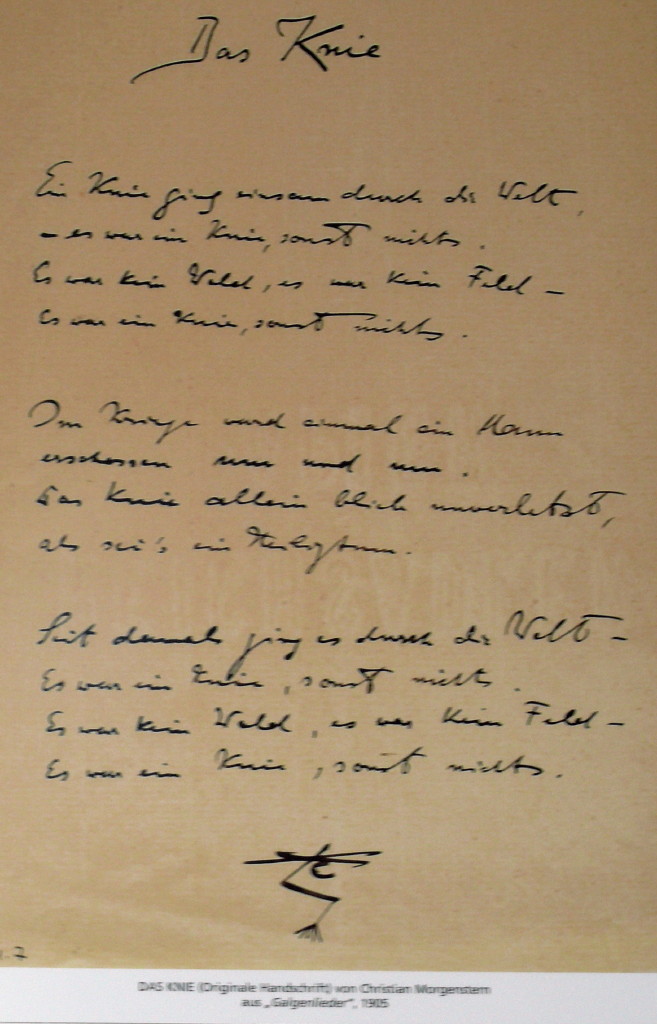 Das Knie
Ein Knie ging einsam durch die Welt,
– es war ein Knie, sonst nichts.
Es war kein Wald, es war kein Feld –
Es war ein Knie, sonst nichts.
Im Kriege ward einmal ein Mann
erschossen um und um.
Das Knie allein blieb unverletzt,
als sei's ein Heiligtum.
Seit damals ging es durch die Welt –
Es war ein Knie, sonst nichts.
Es war kein Wald, es war kein Feld –
Es war ein Knie, sonst nichts.
DAS KNIE (Originale Handschrift) von Christian Morgenstern
aus „Galgenlieder", 1905